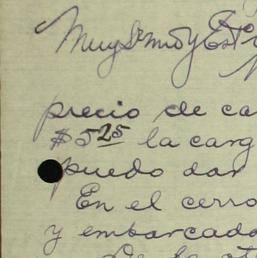 Muy Sr mío y Est
precio de ca
$5 25 la carg
puedo dar
En el cerro
y embarcado
De la ot